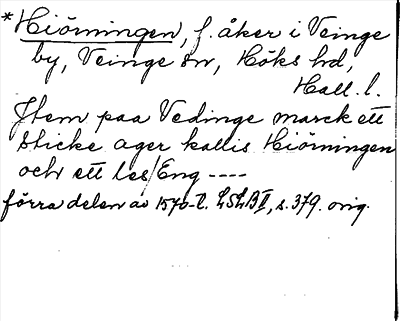 *Hiörningen, f. åker i Veinge
by, Veinge sn, Höks hd,
Hall. l.
Jtem paa Vedinge marck ett
sticke ager kallis Hiörningen
och ett les Eng ----
förra delen av 1570-t. LSLB II, s. 379. orig.